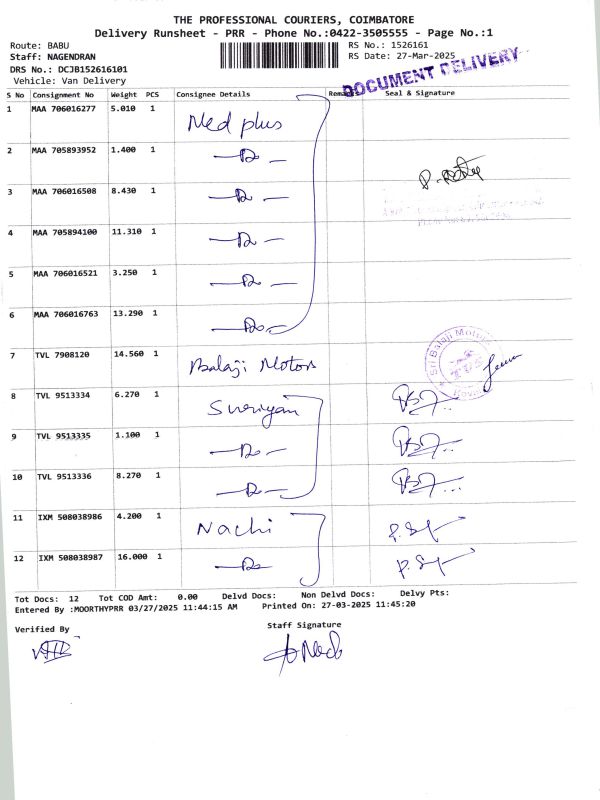 THE PROFESSIONAL COURIERS, COIMBATORE
Delivery Runsheet - PRR - Phone No.:0422-3505555 - Page No.:1
Route: BABU
RS No.: 1526161
Staff: NAGENDRAN
RS Date: 27-Mar-2025
DRS No.: DCJB152616101
Vehicle: Van Delivery
DOCUMENT DELIVERY
S No Consignment No Weight PCS Consignee Details Remarks Seal & Signature
1 MAA 706016277 5.010 1 Med plus
2 MAA 705893952 1.400 1 —Do—
3 MAA 706016508 8.430 1 —Do—
4 MAA 705894100 11.310 1 —Do—
5 MAA 706016521 3.250 1 —Do—
6 MAA 706016763 13.290 1 —Do—
7 TVL 7908120 14.560 1 Balaji Motors Sri Balaji Motors
8 TVL 9513334 6.270 1 Suriyan
9 TVL 9513335 1.100 1 —Do—
10 TVL 9513336 8.270 1 —Do—
11 IXM 508038986 4.200 1 Nachi
12 IXM 508038987 16.000 1 —Do—
Tot Docs: 12 Tot COD Amt: 0.00 Delvd Docs: Non Delvd Docs: Delvy Pts:
Entered By :MOORTHYPRR 03/27/2025 11:44:15 AM Printed On: 27-03-2025 11:45:20
Verified By
Staff Signature